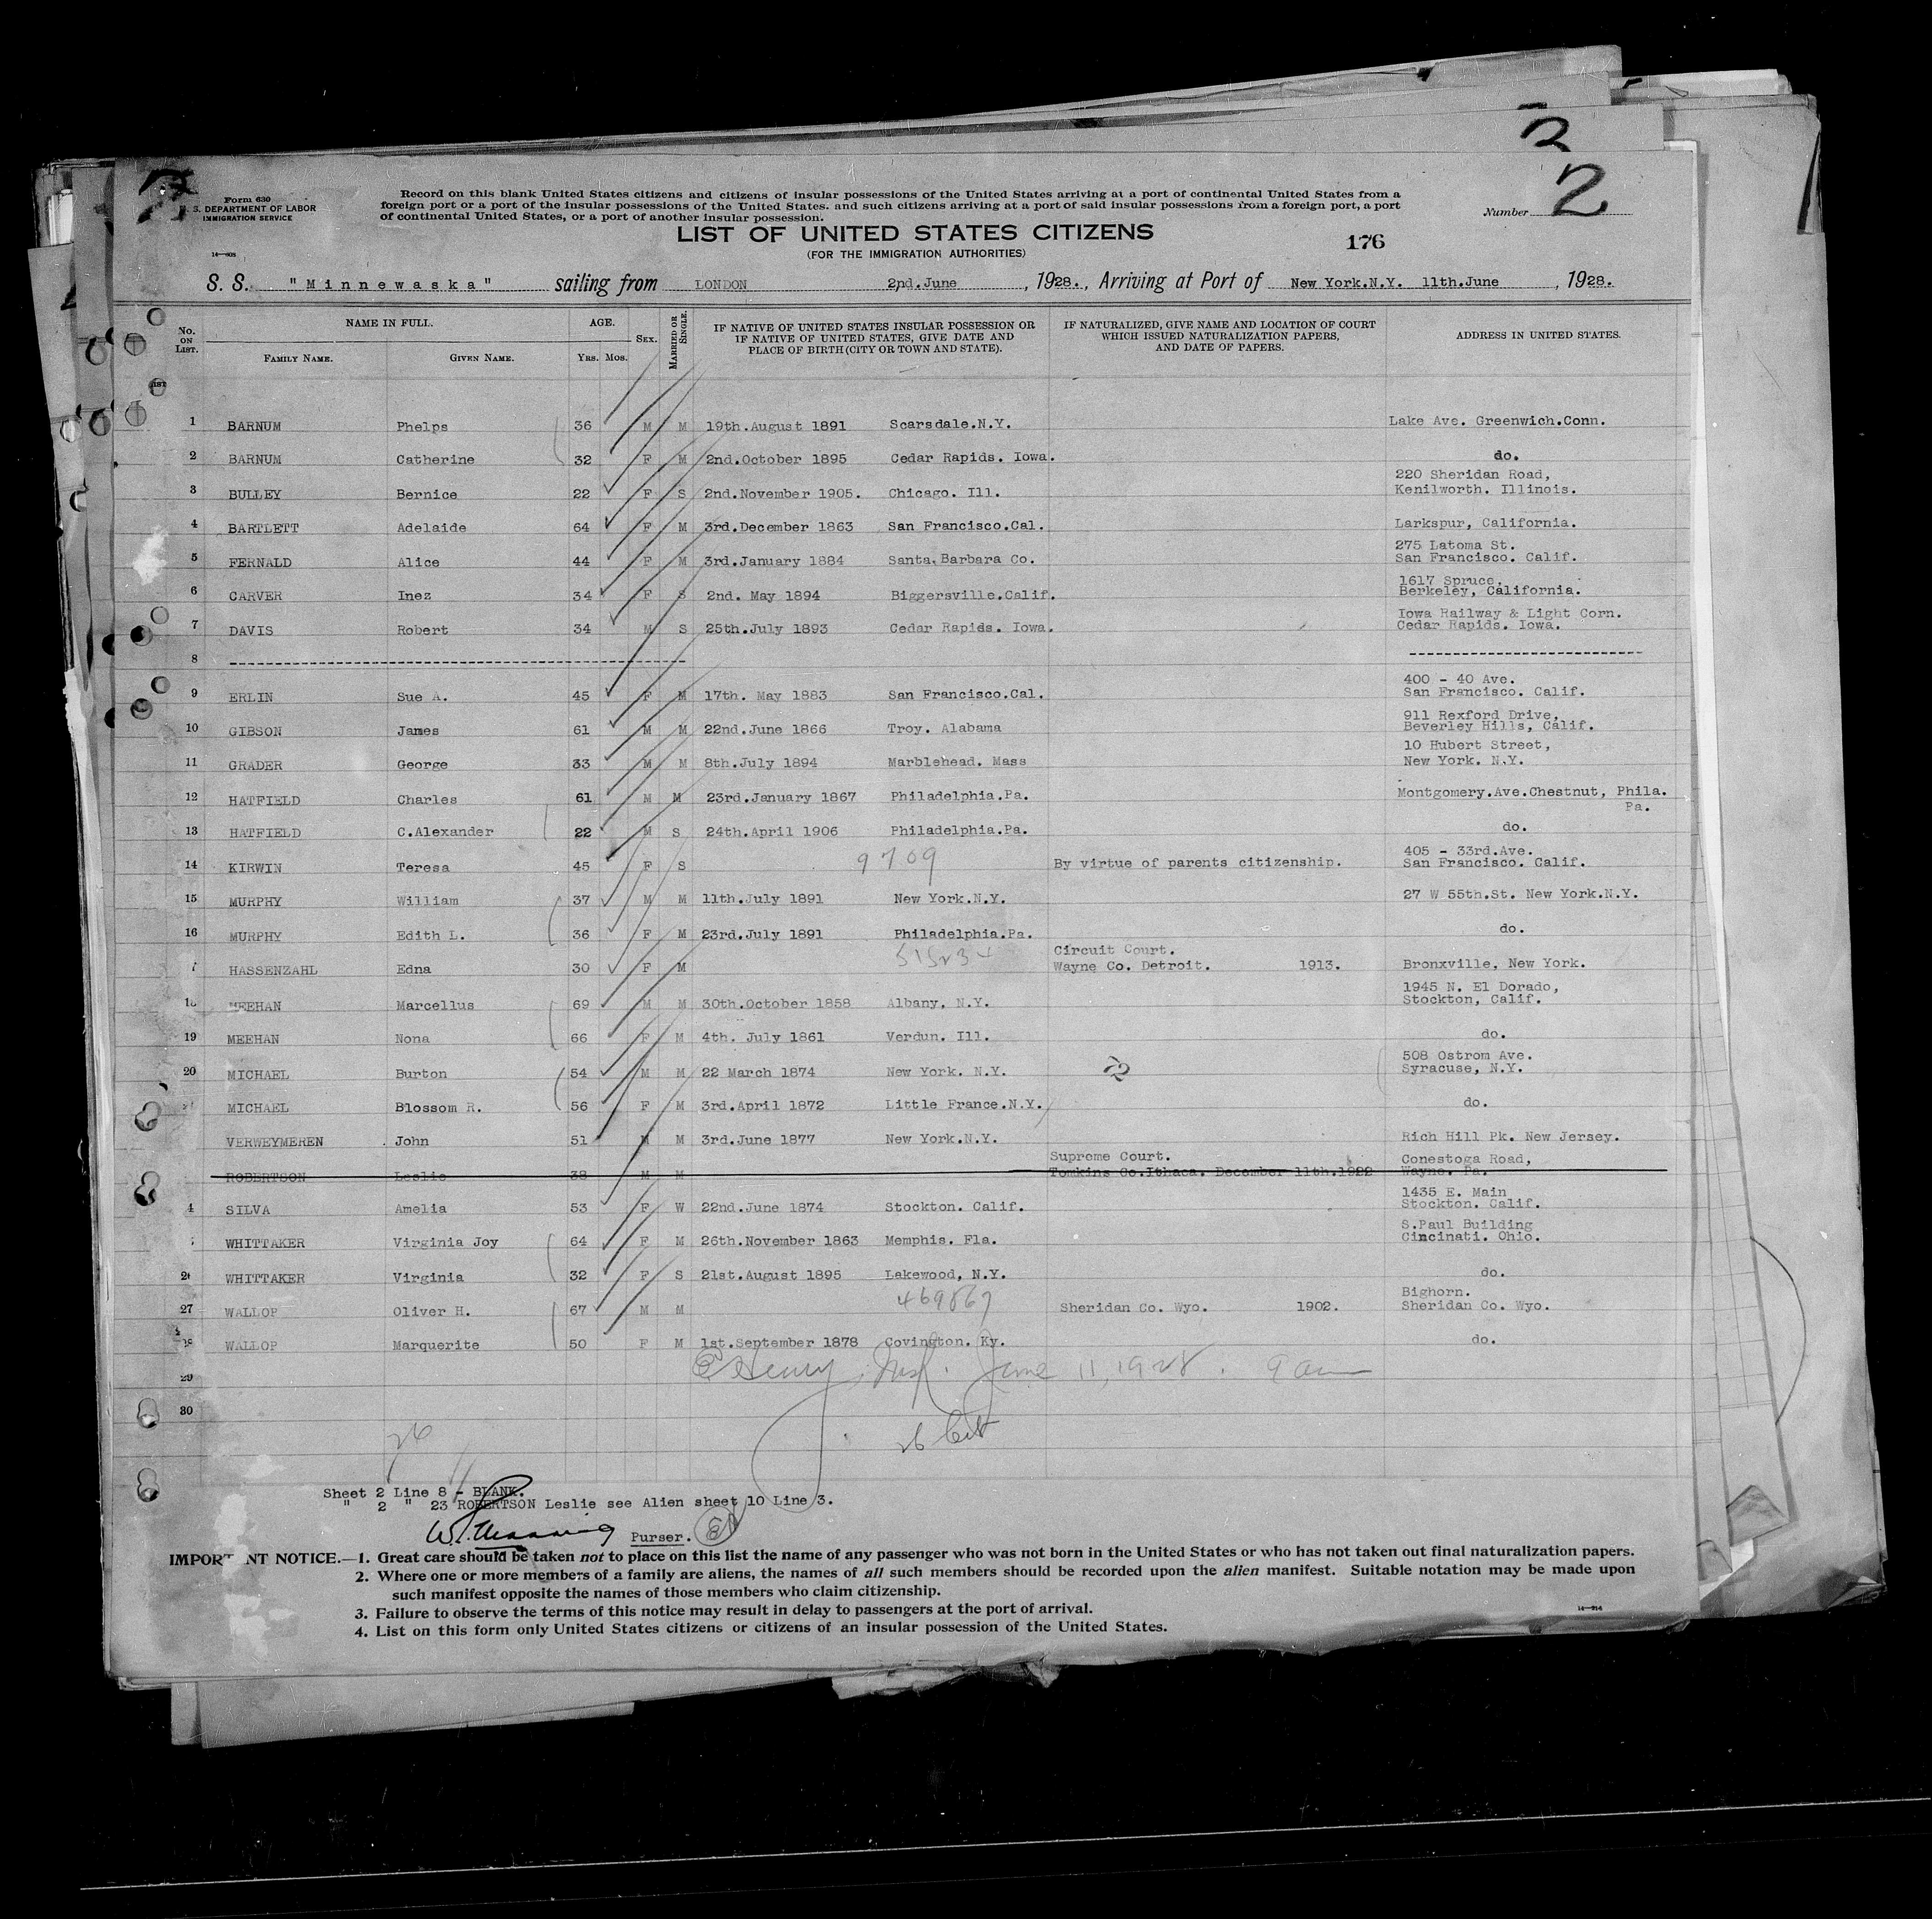 3
2
Form 630
U. S. DEPARTMENT OF LABOR
IMMIGRATION SERVICE
14—808
Record on this blank United States citizens and citizens of insular possessions of the United States arriving at a port of continental United States from a
foreign port or a port of the insular possessions of the United States. and such citizens arriving at a port of said insular possessions from a foreign port, a port
of continental United States, or a port of another insular possession.
Number
LIST OF UNITED STATES CITIZENS
(FOR THE IMMIGRATION AUTHORITIES)
176
S. S. "Minnewaska" sailing from LONDON 2nd.June, 1928., Arriving at Port of New York.N.Y. 11th.June, 1928.
No. ON LIST. NAME IN FULL. FAMILY NAME. GIVEN NAME. AGE. YRS. MOS. SEX. MARRIED OR SINGLE. IF NATIVE OF UNITED STATES INSULAR POSSESSION OR IF NATIVE OF UNITED STATES, GIVE DATE AND PLACE OF BIRTH (CITY OR TOWN AND STATE). IF NATURALIZED, GIVE NAME AND LOCATION OF COURT WHICH ISSUED NATURALIZATION PAPERS, AND DATE OF PAPERS. ADDRESS IN UNITED STATES.
1 BARNUM Phelps 36 M M 19th.August 1891 Scarsdale.N.Y. Lake Ave. Greenwich.Conn.
2 BARNUM Catherine 32 F M 2nd.October 1895 Cedar Rapids. Iowa. do.
3 BULLEY Bernice 22 F S 2nd.November 1905. Chicago. Ill. 220 Sheridan Road, Kenilworth. Illinois.
4 BARTLETT Adelaide 64 F M 3rd.December 1863 San Francisco.Cal. Larkspur, California.
5 FERNALD Alice 44 F M 3rd.January 1884 Santa.Barbara Co. 275 Latoma St. San Francisco. Calif.
6 CARVER Inez 34 F S 2nd. May 1894 Biggersville.Calif. 1617 Spruce. Berkeley, California.
7 DAVIS Robert 34 M S 25th.July 1893 Cedar Rapids. Iowa. Iowa Railway & Light Corn. Cedar Rapids. Iowa.
8
9 ERLIN Sue A. 45 F M 17th. May 1883 San Francisco.Cal. 400 - 40 Ave. San Francisco. Calif.
10 GIBSON James 61 M M 22nd.June 1866 Troy. Alabama 911 Rexford Drive, Beverley Hills, Calif.
11 GRADER George 33 M M 8th.July 1894 Marblehead. Mass 10 Hubert Street, New York. N.Y.
12 HATFIELD Charles 61 M M 23rd.January 1867 Philadelphia.Pa. Montgomery.Ave.Chestnut, Phila. Pa.
13 HATFIELD C.Alexander 22 M S 24th.April 1906 Philadelphia.Pa. do.
14 KIRWIN Teresa 45 F S 9709 By virtue of parents citizenship. 405 - 33rd.Ave. San Francisco. Calif.
15 MURPHY William 37 M M 11th.July 1891 New York.N.Y. 27 W 55th.St. New York.N.Y.
16 MURPHY Edith L. 36 F M 23rd.July 1891 Philadelphia.Pa. do.
7 HASSENZAHL Edna 30 F M Circuit Court. Wayne Co. Detroit. 1913. Bronxville, New York.
18 MEEHAN Marcellus 69 M M 30th.October 1858 Albany, N.Y. 1945 N. El Dorado, Stockton, Calif.
19 MEEHAN Nona 66 F M 4th. July 1861 Verdun. Ill. do.
20 MICHAEL Burton 54 M M 22 March 1874 New York. N.Y. 508 Ostrom Ave. Syracuse, N.Y.
MICHAEL Blossom R. 56 F M 3rd.April 1872 Little France.N.Y. do.
VERWEYMEREN John 51 M M 3rd.June 1877 New York.N.Y. Rich Hill Pk. New Jersey.
ROBERTSON Leslie 38 M M Supreme Court. Tomkins Co.Ithaca. December 11th.1922 Conestoga Road, Wayne. Pa.
4 SILVA Amelia 53 F W 22nd.June 1874 Stockton. Calif. 1435 E. Main Stockton. Calif.
WHITTAKER Virginia Joy 64 F M 26th.November 1863 Memphis. Fla. S.Paul Building Cincinati. Ohio.
26 WHITTAKER Virginia 32 F S 21st.August 1895 Lakewood, N.Y. do.
27 WALLOP Oliver H. 67 M M 469867 Sheridan Co. Wyo. 1902. Bighorn. Sheridan Co. Wyo.
28 WALLOP Marquerite 50 F M 1st.September 1878 Covington. Ky. do.
29 Henry Insp. June 11, 1928. 9 am
30
26
26 Cit
Sheet 2 Line 8 - BLANK.
" 2 " 23 ROBERTSON Leslie see Alien sheet 10 Line 3.
Purser.
IMPORTANT NOTICE.—1. Great care should be taken not to place on this list the name of any passenger who was not born in the United States or who has not taken out final naturalization papers.
2. Where one or more members of a family are aliens, the names of all such members should be recorded upon the alien manifest. Suitable notation may be made upon
such manifest opposite the names of those members who claim citizenship.
3. Failure to observe the terms of this notice may result in delay to passengers at the port of arrival.
4. List on this form only United States citizens or citizens of an insular possession of the United States.